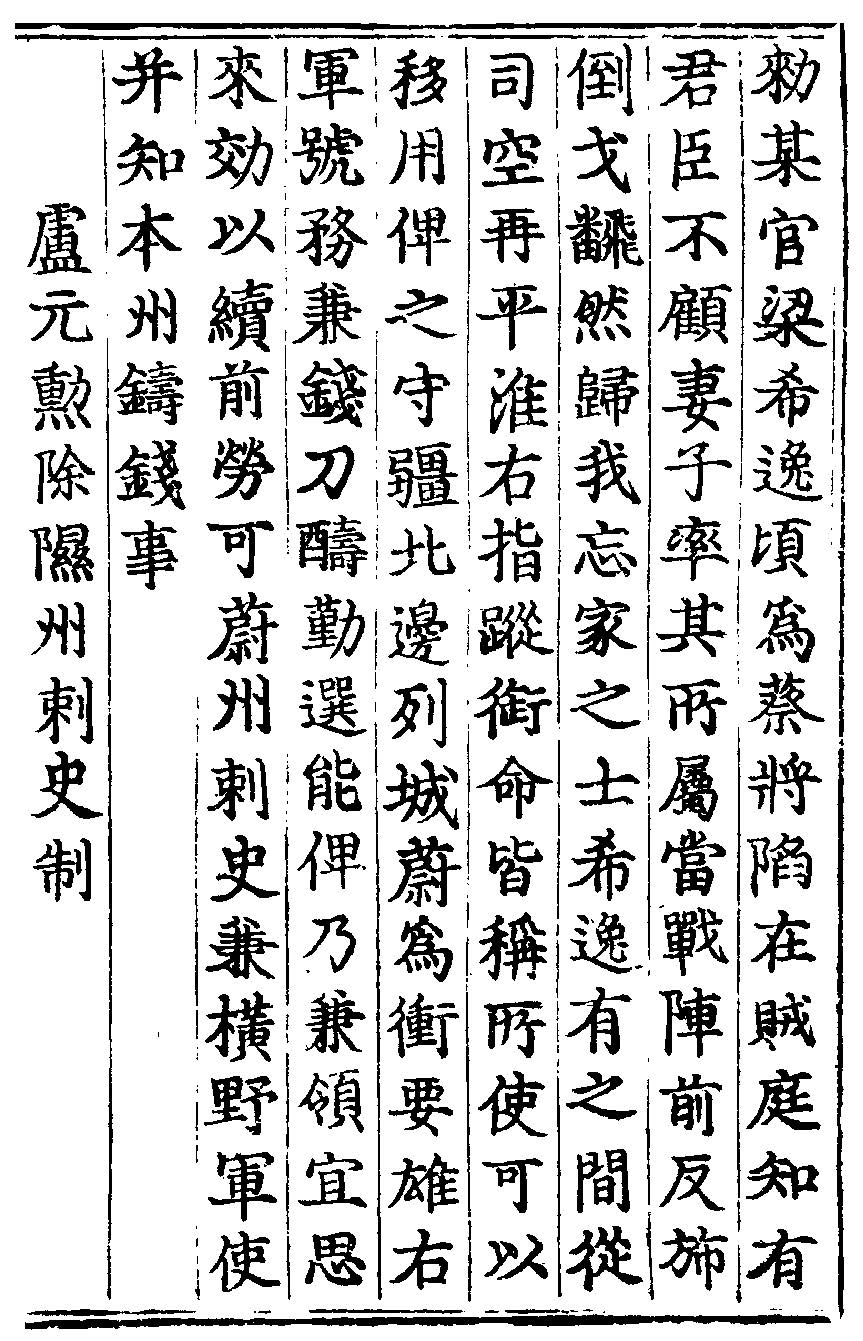 勑某官梁希逸頃爲蔡將陷在賊庭知有
君臣不顧妻子率其所屬當戰陣前反斾
倒戈飜然歸我忘家之士希逸有之間從
司空再平淮右指蹤銜命皆稱所使可以
移用俾之守疆北邊列城蔚爲衝要雄右
軍號務兼錢刀醻勤選能俾乃兼領宜思
來効以續前勞可蔚州刺史兼橫野軍使
并知本州鑄錢事
盧元勲除隰州刺史制